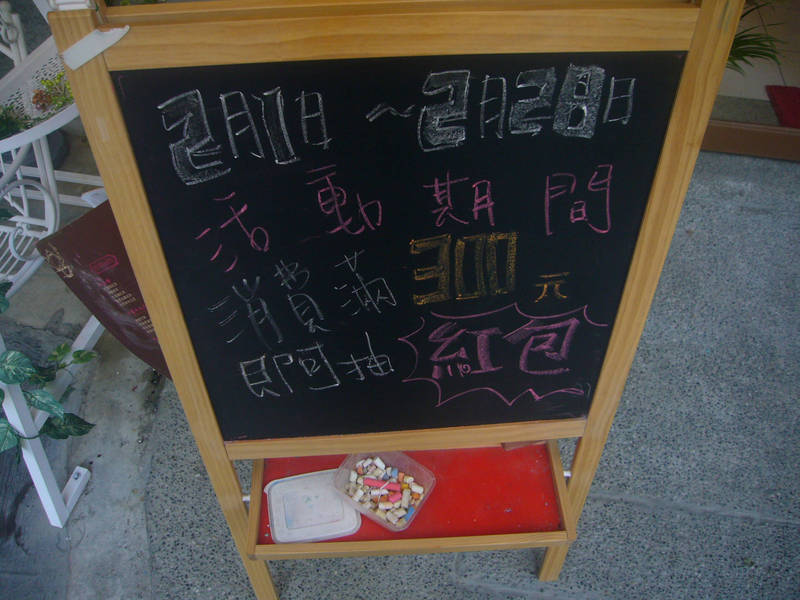 2月1日~2月28日
活動期間
消費滿300元
即可抽紅包